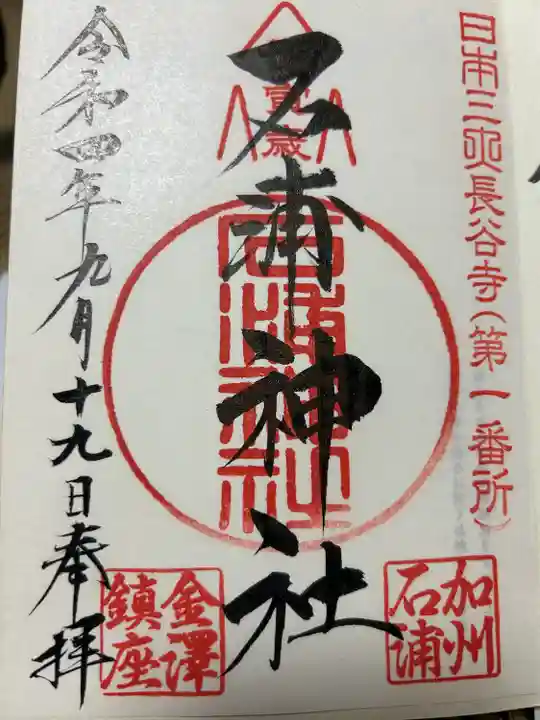 日本三大長谷寺(第一番所)
加州
石浦
石浦神社
石浦神社
金澤
鎮座
令和四年九月十九日奉拝